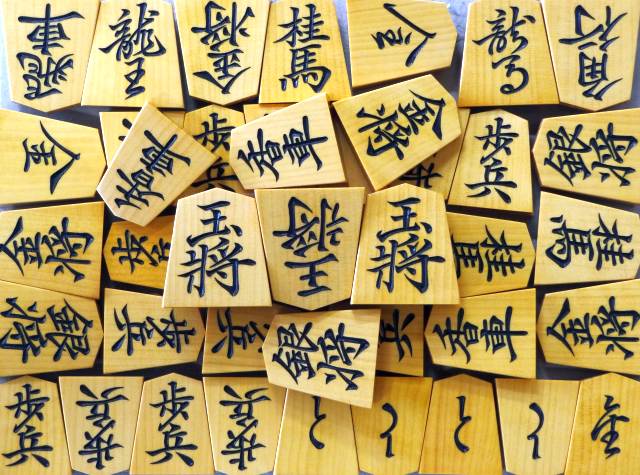 飛車
龍王
金将
桂馬
全
龍馬
角行
全
香車
香車
金将
歩兵
歩兵
銀将
金将
歩兵
玉将
王将
玉将
桂馬
桂馬
銀将
歩兵
歩兵
銀将
香車
金将
歩兵
歩兵
歩兵
歩兵
と
と
と
と
全